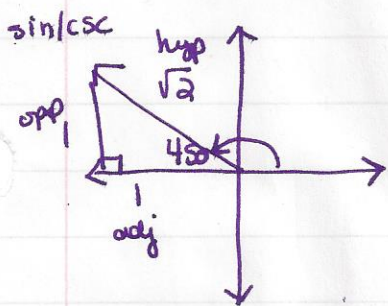 sin/csc
hyp
√2
opp 1
45°
1
adj